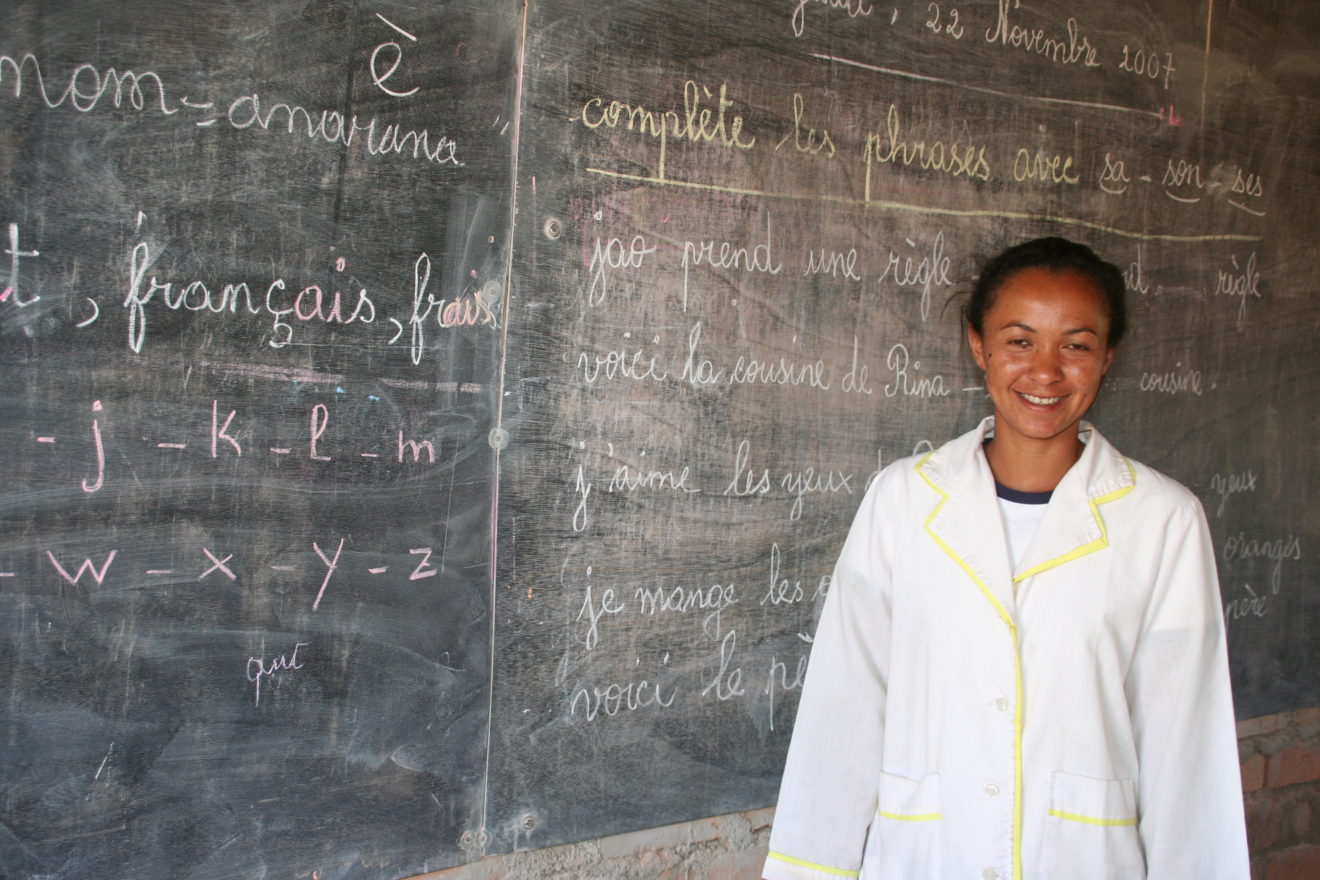 è
nom = anarana
, français, frais
- j - k - l - m
- w - x - y - z
22 Novembre 2007
complète les phrases avec sa - son - ses
jao prend une règle règle
voici la cousine de Rina - cousine.
j'aime les yeux yeux
je mange les oranges
voici le père